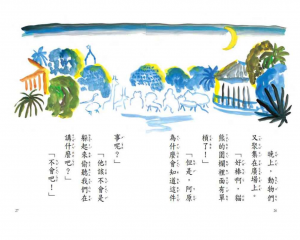 晚上，動物們
又聚集在廣場上。
「好棒啊，貓
熊的圍欄裡面有單
槓了！」
「但是，阿原
為什麼會知道這件
事呢？」
「他該不會是
躲起來偷聽我們在
講什麼吧？」
「不會吧！」